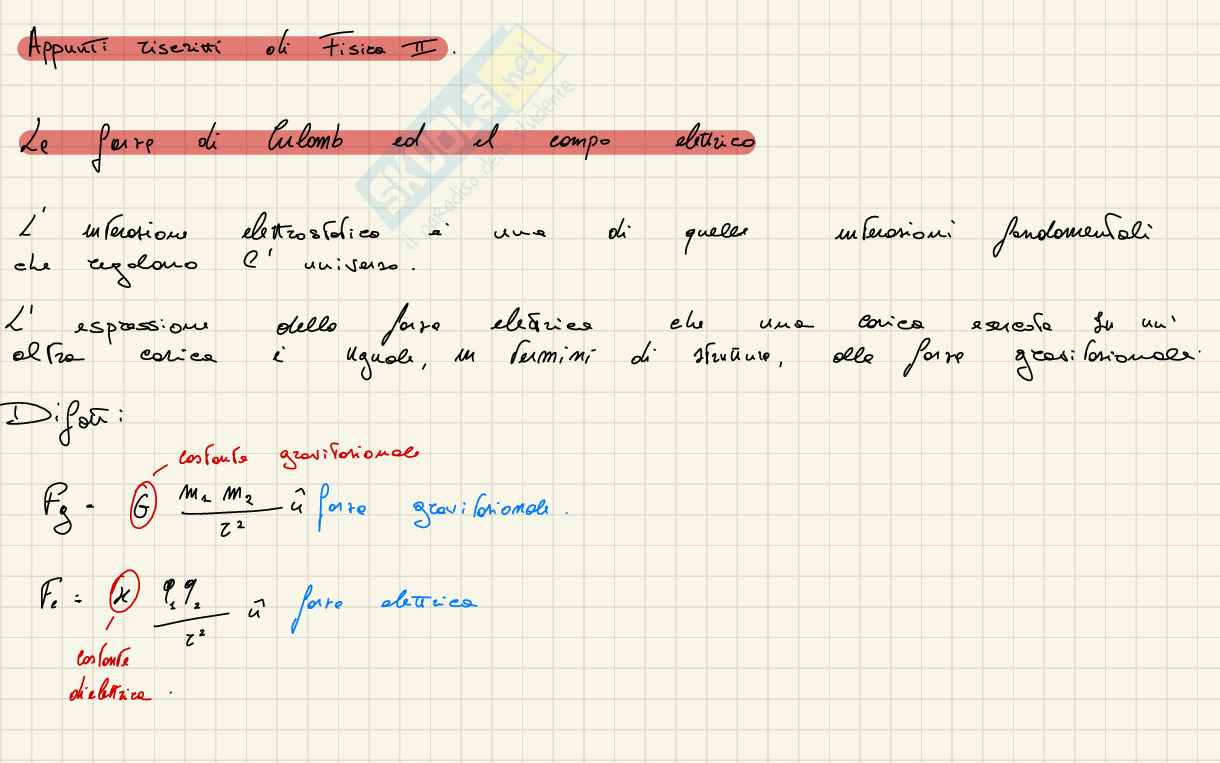 Appunti riscritti di Fisica II.
La forza di Culomb ed il campo elettrico
L' interazione elettrostatica è una di quelle interazioni fondamentali
che regolano l' universo.
L' espressione della forza elettrica che una carica esercita su un'
altra carica è uguale, in termini di struttura, alla forza gravitazionale.
Difatti:
costante gravitazionale
Fg = G m1 m2 / r² û forza gravitazionale.
Fe = K q1 q2 / r² û forza elettrica
costante
dielettrica.
SKUOLA.net
il paradiso dello studente